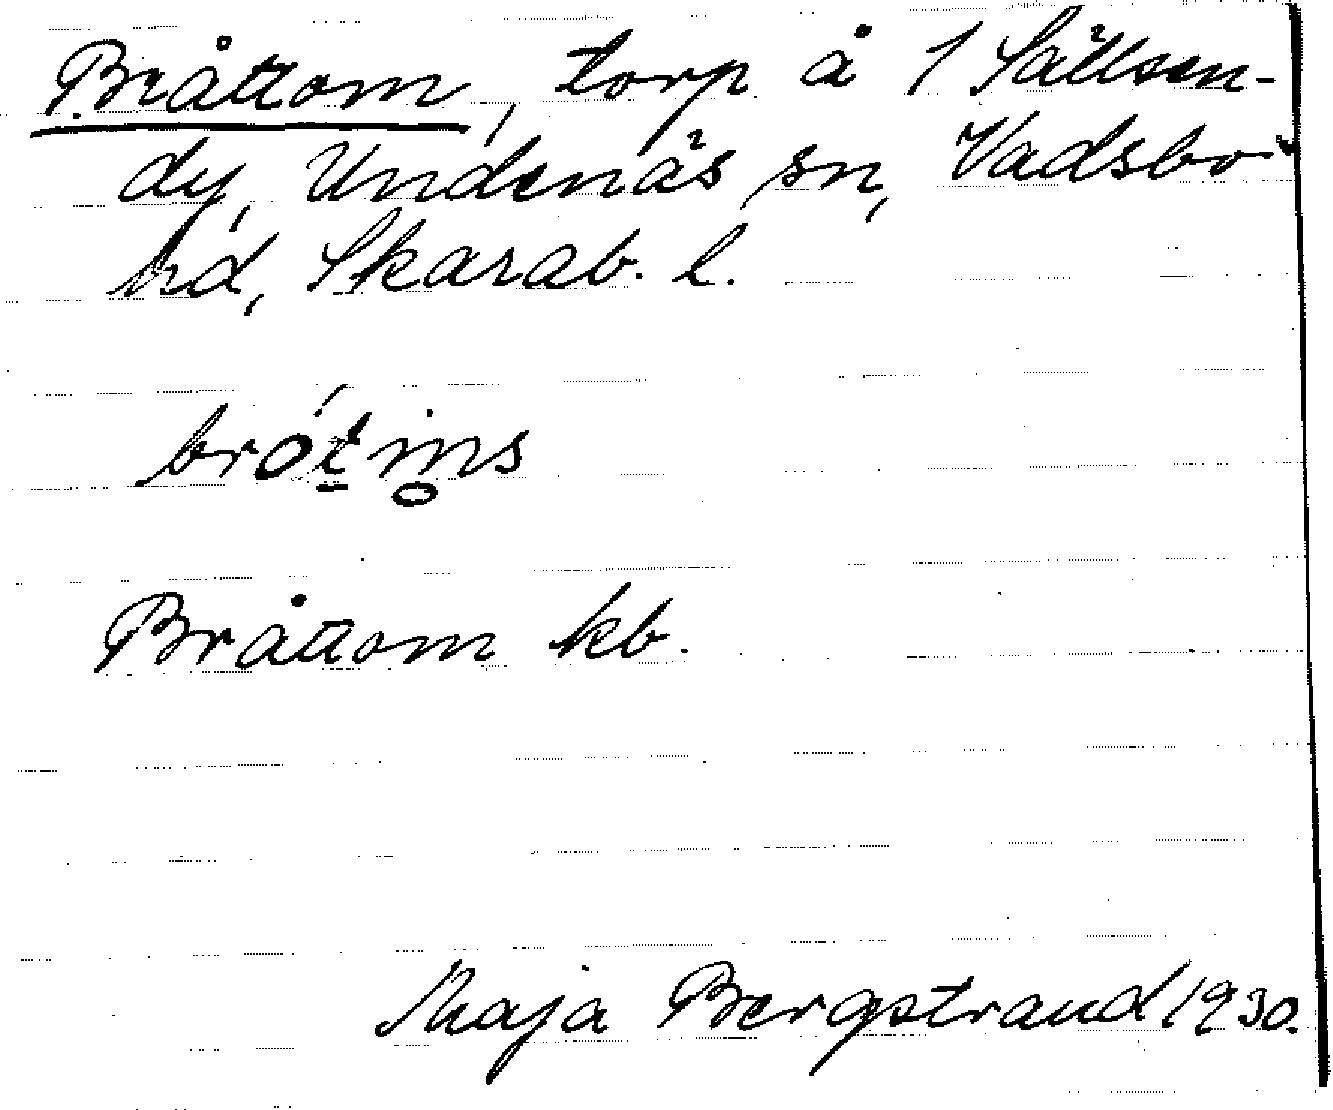 Bråttom, torp å 1 Sätlsen-
dy, Undenäs sn, Vadsbo
hd, Skarab. l.
Bråttom kb.
Maja Bergstrand 1930.